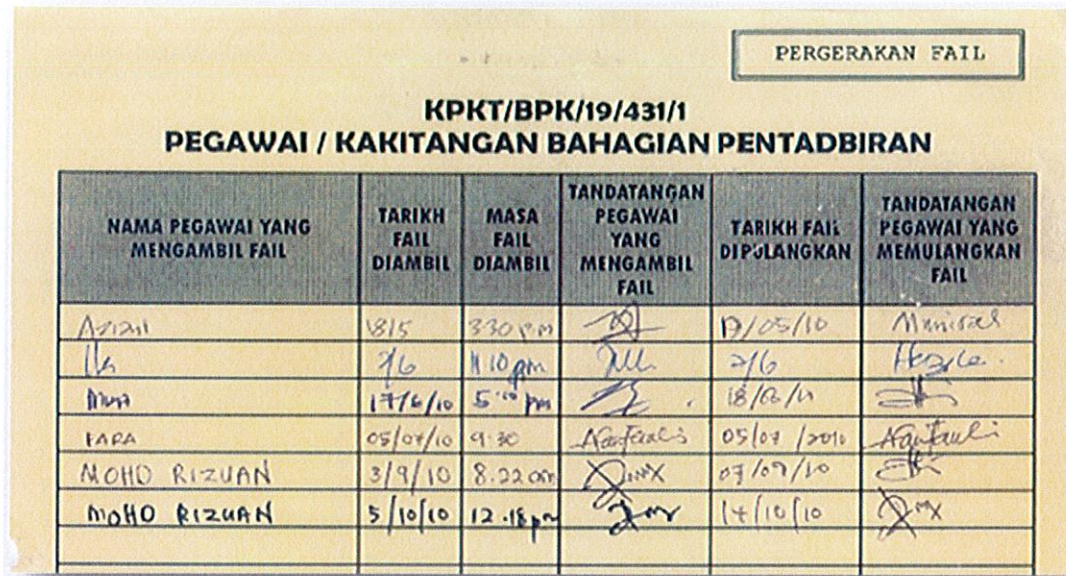 PERGERAKAN FAIL
KPKT/BPK/19/431/1
PEGAWAI / KAKITANGAN BAHAGIAN PENTADBIRAN
NAMA PEGAWAI YANG MENGAMBIL FAIL TARIKH FAIL DIAMBIL MASA FAIL DIAMBIL TANDATANGAN PEGAWAI YANG MENGAMBIL FAIL TARIKH FAIL DIPULANGKAN TANDATANGAN PEGAWAI YANG MEMULANGKAN FAIL
18/5 3.30 pm /05/10
2/6 pm 2/6
17/6/10 5.10 pm
FARA 05/07/10 9.30 05/07/2010
MOHD RIZUAN 3/9/10 8.22 am 07/09/10
MOHD RIZUAN 5/10/10 12.18 pm 14/10/10